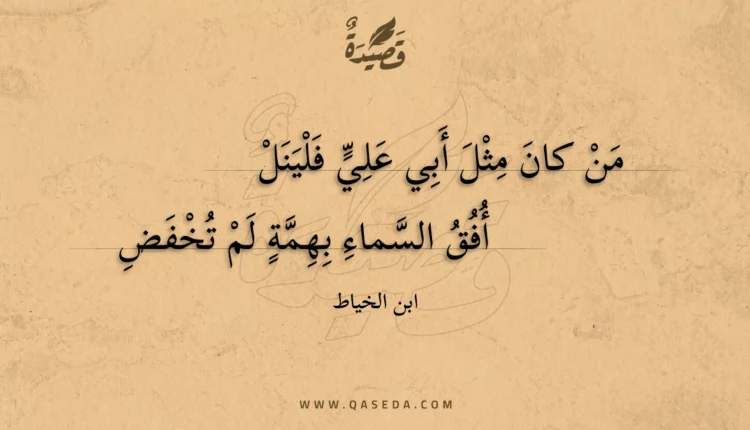 قَصِيْدَةٌ
مَنْ كانَ مِثْلَ أَبِي عَلِيٍّ فَلْيَنَلْ
أُفُقُ السَّماءِ بِهِمَّةٍ لَمْ تُخْفَضِ
ابن الخياط
WWW.QASEDA.COM